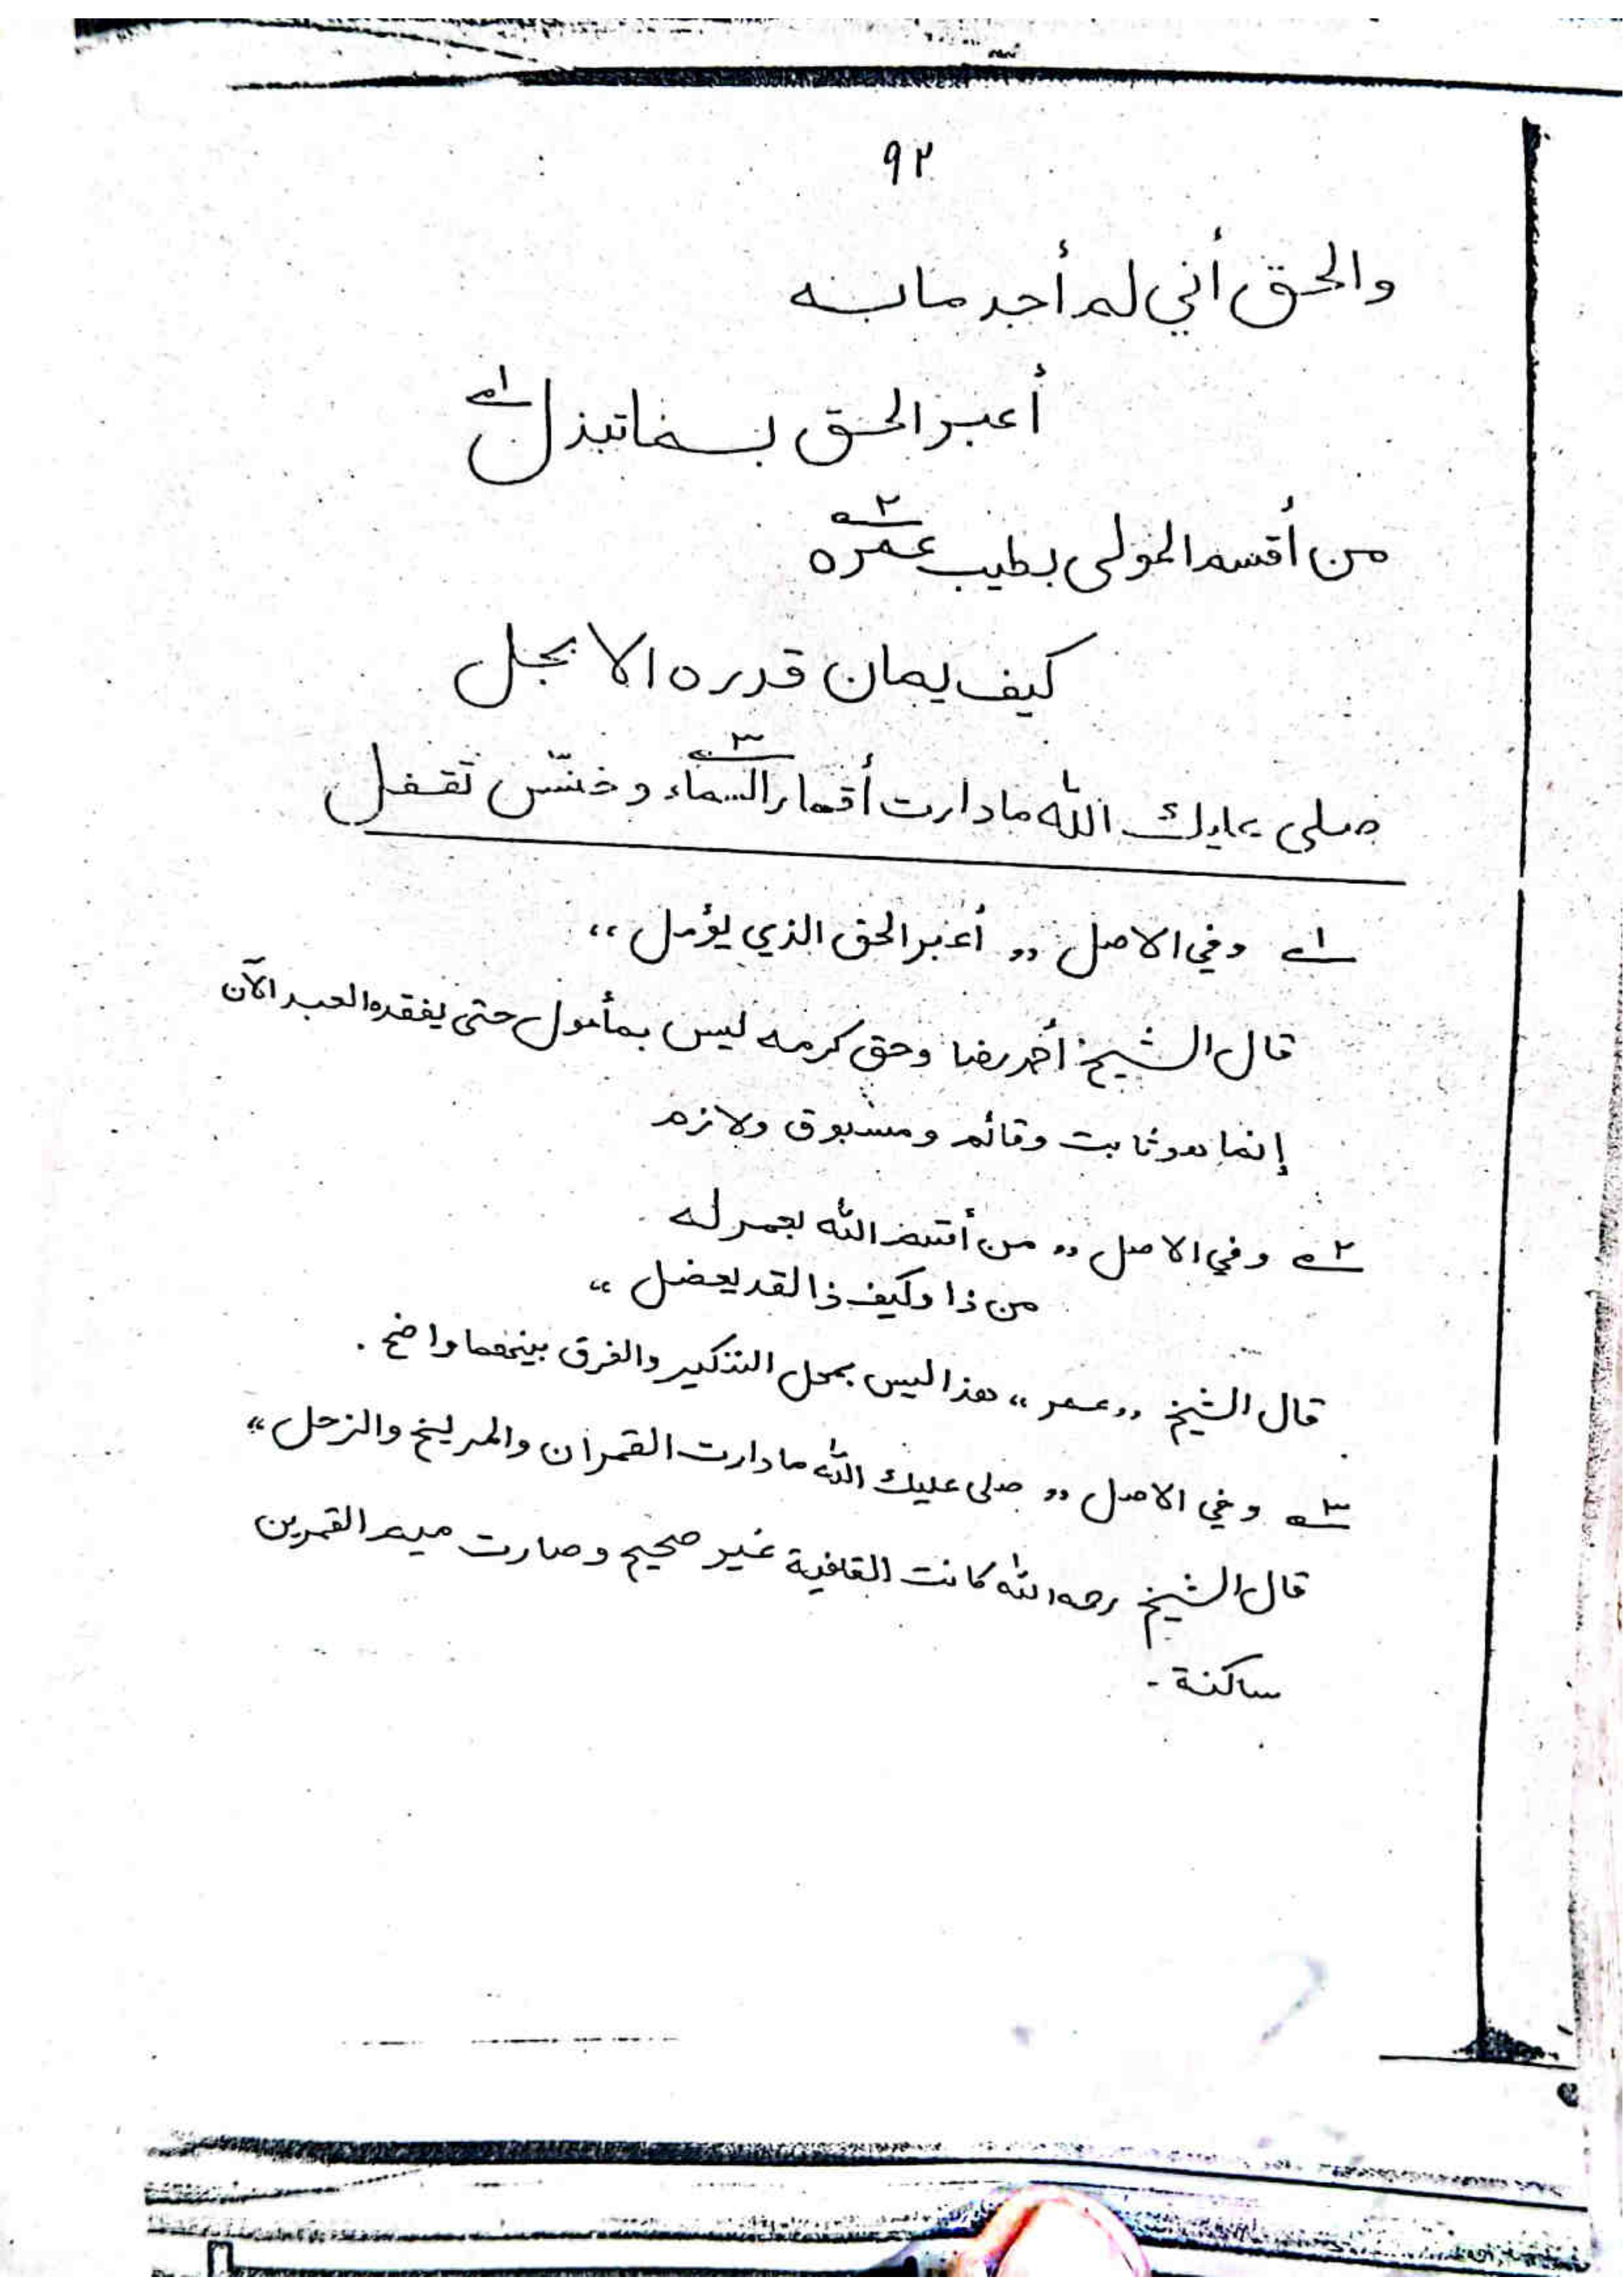 ٩٢
والحق أني لم أجد ما به
أعبر الحق بسخا تبذل ١ـه
من أقسم المولى بطيب عمره ٢ـه
كيف يهان قدره الا بجل
صلى عليك الله ما دارت أقمار السماء ٣ـه وخنّس تقفل
١ـه وفي الاصل ,, أعبر الحق الذي يؤمل ،،
قال الشيخ أحمد رضا وحق كرمه ليس بمأمول حتى يفقده العبد الآن
إنما هو ثابت وقائم ومسبوق ولازم
٢ـه وفي الاصل ,, من أقسم الله بعمر له
من ذا وكيف ذا لقد يعضل ،،
قال الشيخ ,,عمر ،، هذا ليس بمحل التذكير والفرق بينهما واضح .
٣ـه وفي الاصل ,, صلى عليك الله ما دارت القمران والمريخ والزحل ،،
قال الشيخ رحمه الله كانت القافية غير صحيح وصارت ميم القمرين
ساكنة -